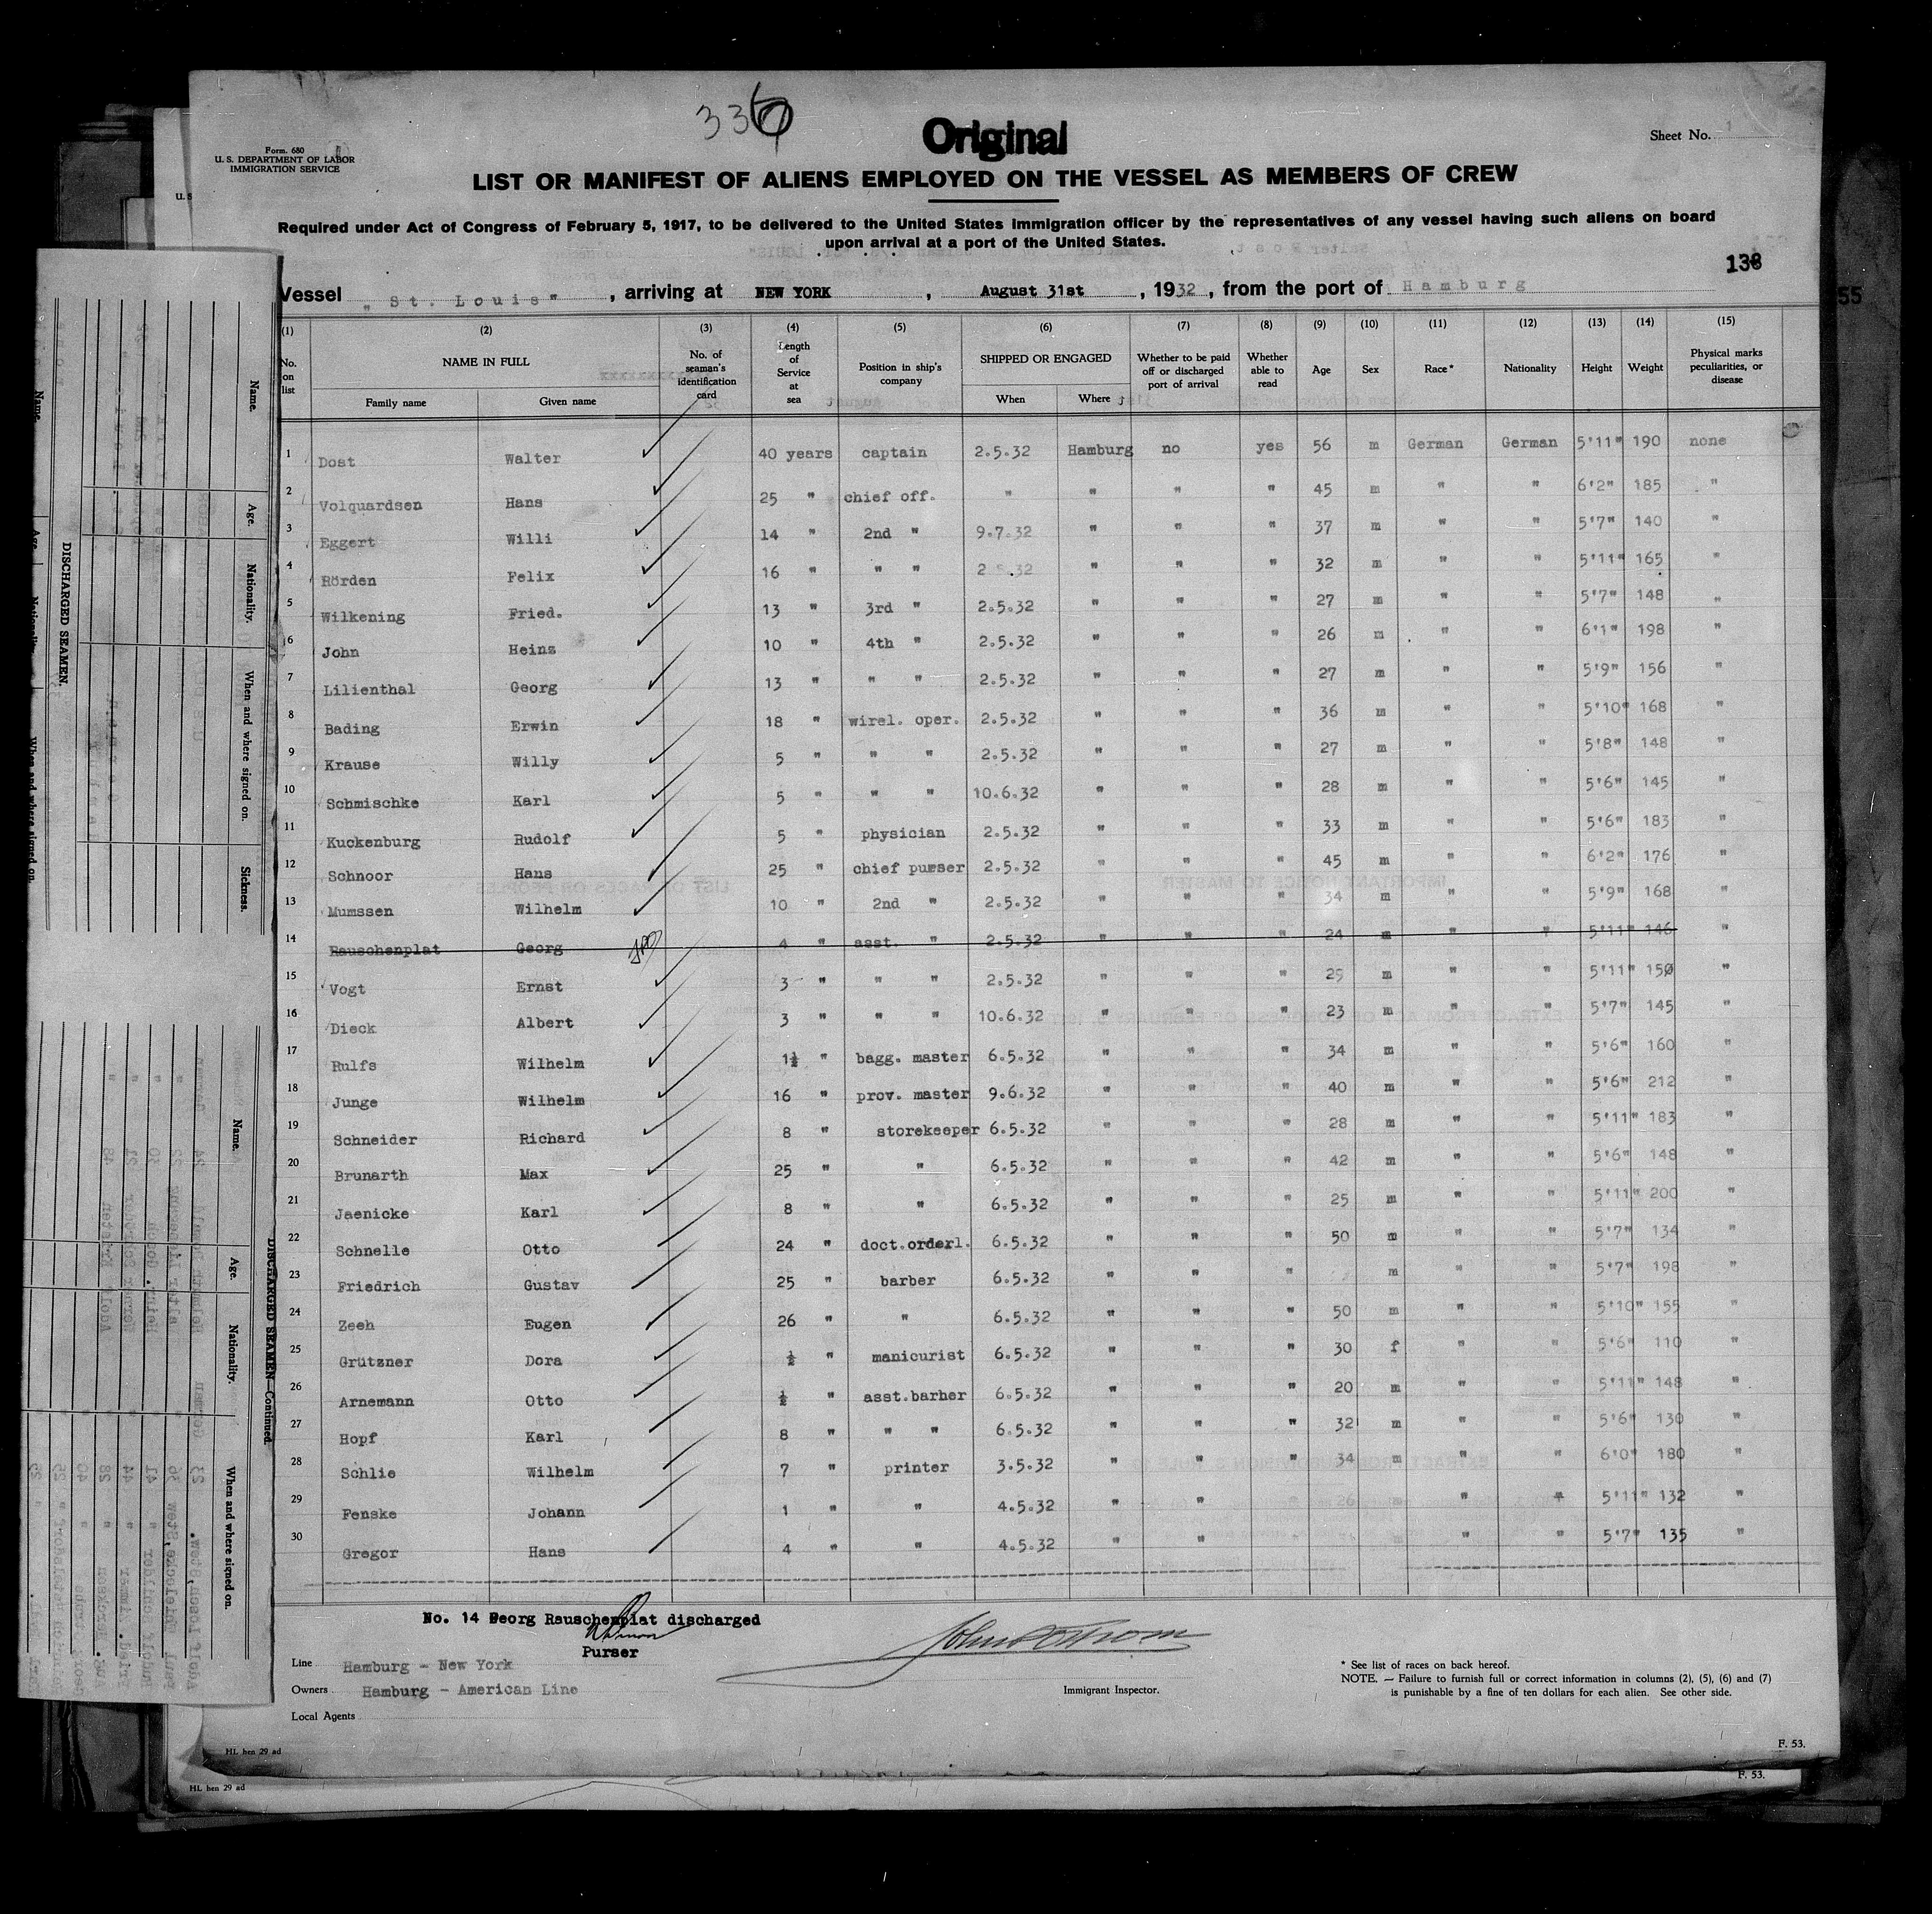 336
Original
Sheet No. 1
Form. 680
U. S. DEPARTMENT OF LABOR
IMMIGRATION SERVICE
LIST OR MANIFEST OF ALIENS EMPLOYED ON THE VESSEL AS MEMBERS OF CREW
Required under Act of Congress of February 5, 1917, to be delivered to the United States Immigration officer by the representatives of any vessel having such aliens on board
upon arrival at a port of the United States.
138
Vessel „ St. Louis" , arriving at NEW YORK , August 31st , 1932 , from the port of Hamburg
55
(1) (2) (3) (4) (5) (6) (7) (8) (9) (10) (11) (12) (13) (14) (15)
No. on list NAME IN FULL Family name Given name No. of seaman's identification card Length of Service at sea Position in ship's company SHIPPED OR ENGAGED When Where Whether to be paid off or discharged port of arrival Whether able to read Age Sex Race* Nationality Height Weight Physical marks peculiarities, or disease
1 Dost Walter 40 years captain 2.5.32 Hamburg no yes 56 m German German 5'11" 190 none
2 Volquardsen Hans 25 " chief off. " " " " 45 m " " 6'2" 185 "
3 Eggert Willi 14 " 2nd " 9.7.32 " " " 37 m " " 5'7" 140 "
4 Rörden Felix 16 " " " 2 5.32 " " " 32 m " " 5'11" 165 "
5 Wilkening Fried. 13 " 3rd " 2.5.32 " " " 27 m " " 5'7" 148 "
6 John Heinz 10 " 4th " 2.5.32 " " " 26 m " " 6'1" 198 "
7 Lilienthal Georg 13 " " " 2.5.32 " " " 27 m " " 5'9" 156 "
8 Bading Erwin 18 " wirel. oper. 2.5.32 " " " 36 m " " 5'10" 168 "
9 Krause Willy 5 " " " 2.5.32 " " " 27 m " " 5'8" 148 "
10 Schmischke Karl 5 " " " 10.6.32 " " " 28 m " " 5'6" 145 "
11 Kuckenburg Rudolf 5 " physician 2.5.32 " " " 33 m " " 5'6" 183 "
12 Schnoor Hans 25 " chief purser 2.5.32 " " " 45 m " " 6'2" 176 "
13 Mumssen Wilhelm 10 " 2nd " 2.5.32 " " " 34 m " " 5'9" 168 "
14 Rauschenplat Georg 4 " asst. " 2.5.32 " " " 24 m " " 5'11" 146 "
15 Vogt Ernst 3 " " " 2.5.32 " " " 25 m " " 5'11" 150 "
16 Dieck Albert 3 " " " 10.6.32 " " " 23 m " " 5'7" 145 "
17 Rulfs Wilhelm 1½ " bagg. master 6.5.32 " " " 34 m " " 5'6" 160 "
18 Junge Wilhelm 16 " prov. master 9.6.32 " " " 40 m " " 5'6" 212 "
19 Schneider Richard 8 " storekeeper 6.5.32 " " " 28 m " " 5'11" 183 "
20 Brunarth Max 25 " " 6.5.32 " " " 42 m " " 5'6" 148 "
21 Jaenicke Karl 8 " " 6.5.32 " " " 25 m " " 5'11" 200 "
22 Schnelle Otto 24 " doct.orderl. 6.5.32 " " " 50 m " " 5'7" 134 "
23 Friedrich Gustav 25 " barber 6.5.32 " " " m " " 5'7" 198 "
24 Zeeh Eugen 26 " " 6.5.32 " " " 50 m " " 5'10" 155 "
25 Grützner Dora ½ " manicurist 6.5.32 " " " 30 f " " 5'6" 110 "
26 Arnemann Otto ½ " asst.barber 6.5.32 " " " 20 m " " 5'11" 148 "
27 Hopf Karl 8 " " " 6.5.32 " " " 32 m " " 5'6" 130 "
28 Schlie Wilhelm 7 " printer 3.5.32 " " " 34 m " " 6'0" 180 "
29 Fenske Johann 1 " " 4.5.32 " " " 26 " " 5'11" 132 "
30 Gregor Hans 4 " " 4.5.32 " " " " 5'7" 135 "
No. 14 Georg Rauschenplat discharged
Purser
Line Hamburg - New York
Owners Hamburg - American Line
Local Agents
Immigrant Inspector.
* See list of races on back hereof.
NOTE. — Failure to furnish full or correct information in columns (2), (5), (6) and (7)
is punishable by a fine of ten dollars for each alien. See other side.
HL hen 29 ad
F. 53.
HL hen 29 ad
F. 53.
DISCHARGED SEAMEN.
Name. Age. Nationality. When and where signed on. Sickness.
DISCHARGED SEAMEN—Continued.
Name. Age. Nationality. When and where signed on.